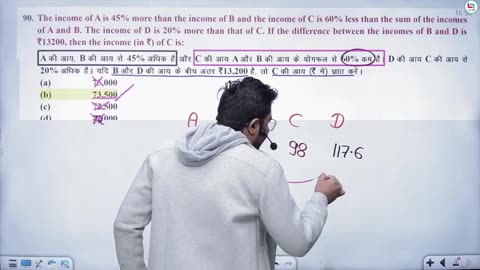 90. The income of A is 45% more than the income of B and the income of C is 60% less than the sum of the incomes
of A and B. The income of D is 20% more than that of C. If the difference between the incomes of B and D is
₹13200, then the income (in ₹) of C is:
A की आय, B की आय से 45% अधिक है और C की आय A और B की आय के योगफल से 60% कम है। D की आय C की आय से
20% अधिक है। यदि B और D की आय के बीच अंतर ₹13,200 है, तो C की आय (₹ में) ज्ञात करें।
(a) 75,000
(b) 73,500
(c) 72,500
(d) 72,000
A C D
98 117.6